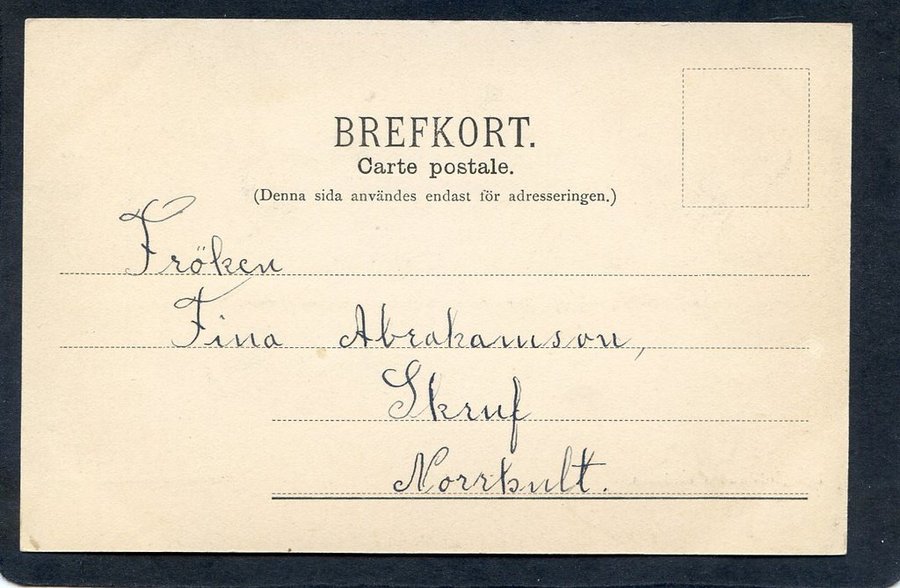 BREFKORT.
Carte postale.
(Denna sida användes endast för adresseringen.)
Fröken
Tina Abrahamson,
Skruf
Norrhult.